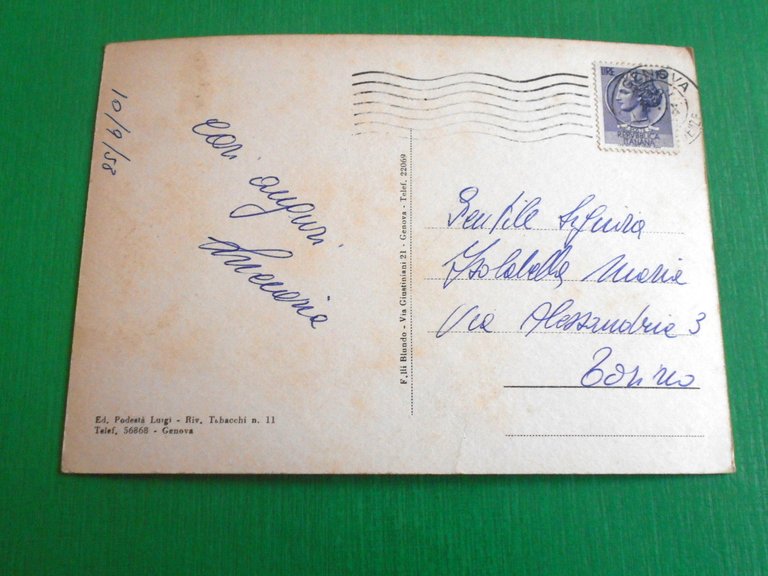 10/9/58
cari auguri
Ed. Podestà Luigi - Riv. Tabacchi n. 11
Telef. 56868 - Genova
F.lli Biundo - Via Giustiniani 21 - Genova - Telef. 22069
LIRE
REPUBBLICA
ITALIANA
GENOVA
Gentile Signora
Isolabella Maria
Via Alessandria 3
Torino